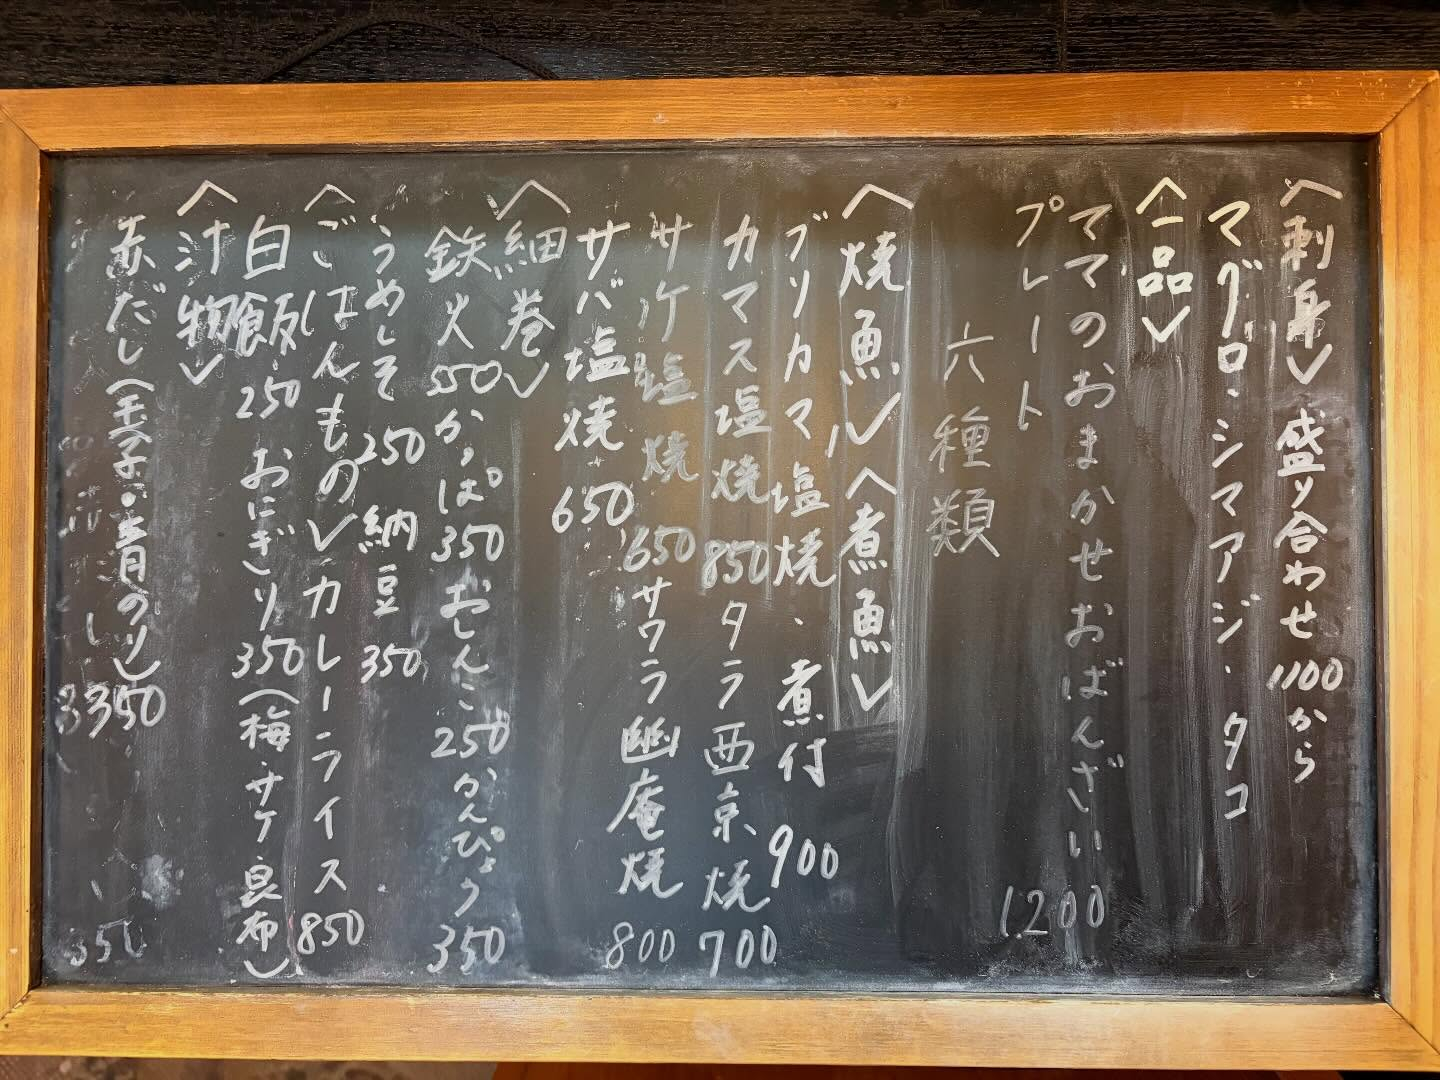 〈刺身〉盛り合わせ1100から
マグロ・シマアジ・タコ
〈一品〉
ママのおまかせおばんざい
プレート 1200
六種類
〈焼魚〉〈煮魚〉
ブリカマ塩焼、煮付 900
カマス塩焼 850 タラ西京焼 700
サケ塩焼 650 サワラ幽庵焼 800
サバ塩焼 650
〈細巻〉
鉄火 550 かっぱ 350 おしんこ 250 かんぴょう 350
うめしそ 250 納豆 350
〈ごはんもの〉カレーライス 850
白飯・250 おにぎり 350(梅・サケ・昆布)
〈汁物〉
赤だし(玉子・青のり) 350
350